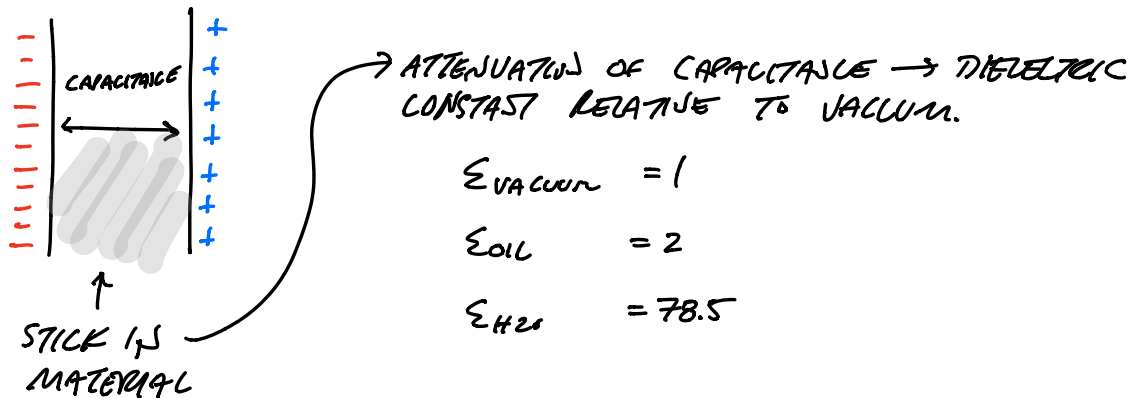 CAPACITANCE
STICK IN
MATERIAL
ATTENUATION OF CAPACITANCE → DIELECTRIC
CONSTANT RELATIVE TO VACCUM.
ε VACUUM = 1
ε OIL = 2
ε H2O = 78.5